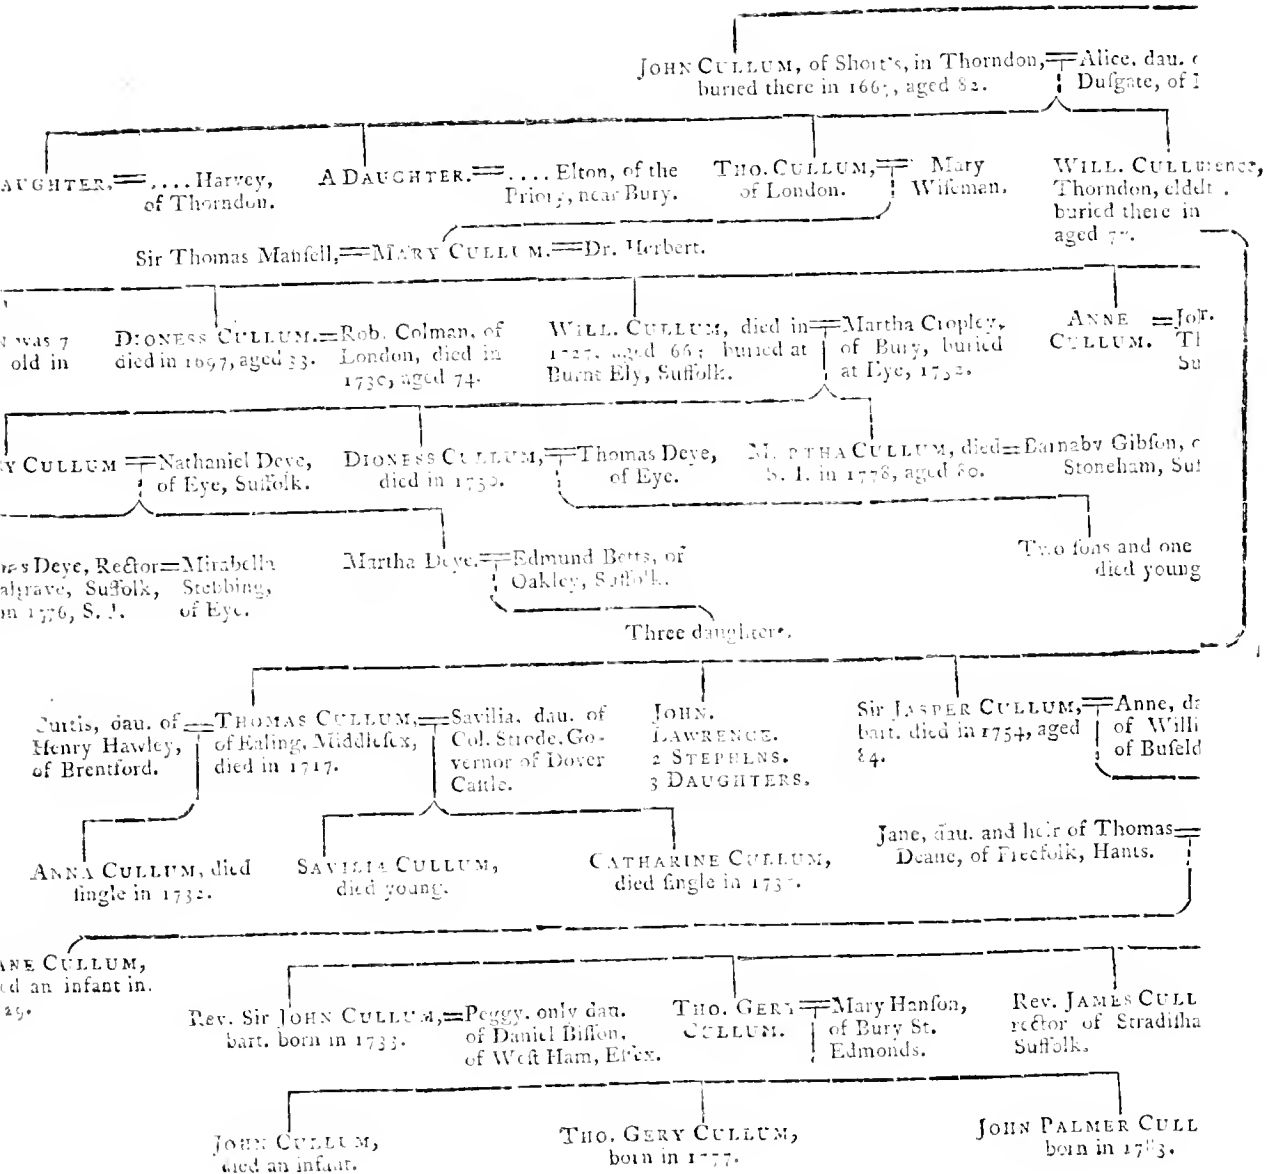 JOHN CULLUM, of Short's, in Thorndon,
buried there in 166 , aged 82.
Alice, dau.
Duſgate, of
AUGHTER.
.... Harvey,
of Thorndon.
A DAUGHTER.
.... Elton, of the
Priory, near Bury.
THO. CULLUM,
of London.
Mary
Wiſeman.
WILL. CULL
Thorndon,
buried there in
aged
Sir Thomas Manſell,
MARY CULLUM.
Dr. Herbert.
was 7
old in
DIONESS CULLUM.
died in 1697, aged 33.
Rob. Colman, of
London, died in
1730, aged 74.
WILL. CULLUM, died in
1727, aged 66; buried at
Burnt Ely, Suffolk.
Martha Cropley,
of Bury, buried
at Eye, 1732.
ANNE
CULLUM.
RY CULLUM
Nathaniel Deye,
of Eye, Suffolk.
DIONESS CULLUM,
died in 1750.
Thomas Deye,
of Eye.
MARTHA CULLUM, died
S. I. in 1778, aged 80.
Barnaby Gibſon,
Stoneham, Suf
Deye, Rector
algrave, Suffolk,
in 1776, S.
Mirabella
Stebbing,
of Eye.
Martha Deye.
Edmund Betts, of
Oakley, Suffolk.
Two ſons and one
died young
Three daughters.
Curtis, dau. of
Henry Hawley,
of Brentford.
THOMAS CULLUM,
of Ealing, Middleſex,
died in 1717.
Savilia, dau. of
Col. Strode, Go-
vernor of Dover
Caſtle.
JOHN.
LAWRENCE.
2 STEPHENS.
3 DAUGHTERS.
Sir JASPER CULLUM,
bart. died in 1754, aged
84.
Anne, da
of Willi
of Buſeld
ANNA CULLUM, died
ſingle in 1732.
SAVILIA CULLUM,
died young.
CATHARINE CULLUM,
died ſingle in
Jane, dau. and heir of Thomas
Deane, of Freefolk, Hants.
ANE CULLUM,
ed an infant in.
29.
Rev. Sir JOHN CULLUM,
bart. born in 1733.
Peggy, only dau.
of Daniel Biſſon,
of Weſt Ham, Eſſex.
THO. GERY
CULLUM.
Mary Hanſon,
of Bury St.
Edmonds.
Rev. JAMES CULL
rector of Stradiſha
Suffolk.
JOHN CULLUM,
died an infant.
THO. GERY CULLUM,
born in 1777.
JOHN PALMER CULL
born in 1783.